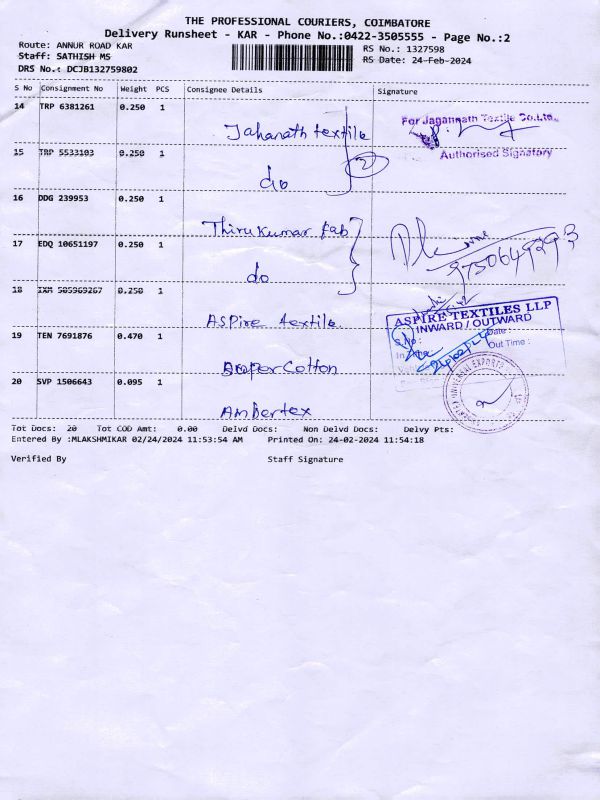 THE PROFESSIONAL COURIERS, COIMBATORE
Delivery Runsheet - KAR - Phone No.:0422-3505555 - Page No.:2
Route: ANNUR ROAD KAR
RS No.: 1327598
Staff: SATHISH MS
RS Date: 24-Feb-2024
DRS No.: DCJB132759802
S No Consignment No Weight PCS Consignee Details Signature
14 TRP 6381261 0.250 1
Jahanath textile
For Jagannath Textile Co.Ltd.,
Authorised Signatory
15 TRP 5533103 0.250 1
do
2
16 DDG 239953 0.250 1
Thirukumar fab
17 EDQ 10651197 0.250 1
do
18 0.250 1
ASPire textile
ASPIRE TEXTILES LLP
INWARD / OUTWARD
S.No :
Date :
Out Time :
19 TEN 7691876 0.470 1
Cotton
20 SVP 1506643 0.095 1
Ambertex
UNIVERSAL EXPORTS
Tot Docs: 20 Tot COD Amt: 0.00 Delvd Docs: Non Delvd Docs: Delvy Pts:
Entered By :MLAKSHMIKAR 02/24/2024 11:53:54 AM Printed On: 24-02-2024 11:54:18
Verified By Staff Signature